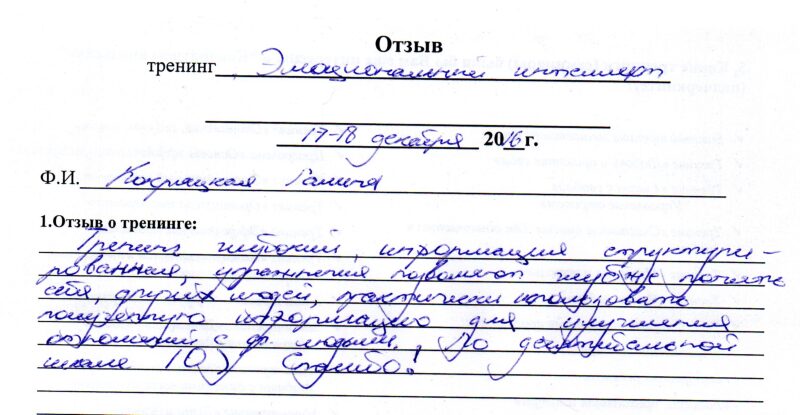 Отзыв
тренинг Эмоциональный интеллект
17-18 декабря 2016 г.
Ф.И. Галина
1.Отзыв о тренинге:
Тренинг глубокий, информация структури-
рованная, упражнения позволяют глубже понять
себя, других людей, практически использовать
полученную информацию для улучшения
отношений с др. людьми. По десятибалльной
шкале 10) Спасибо!